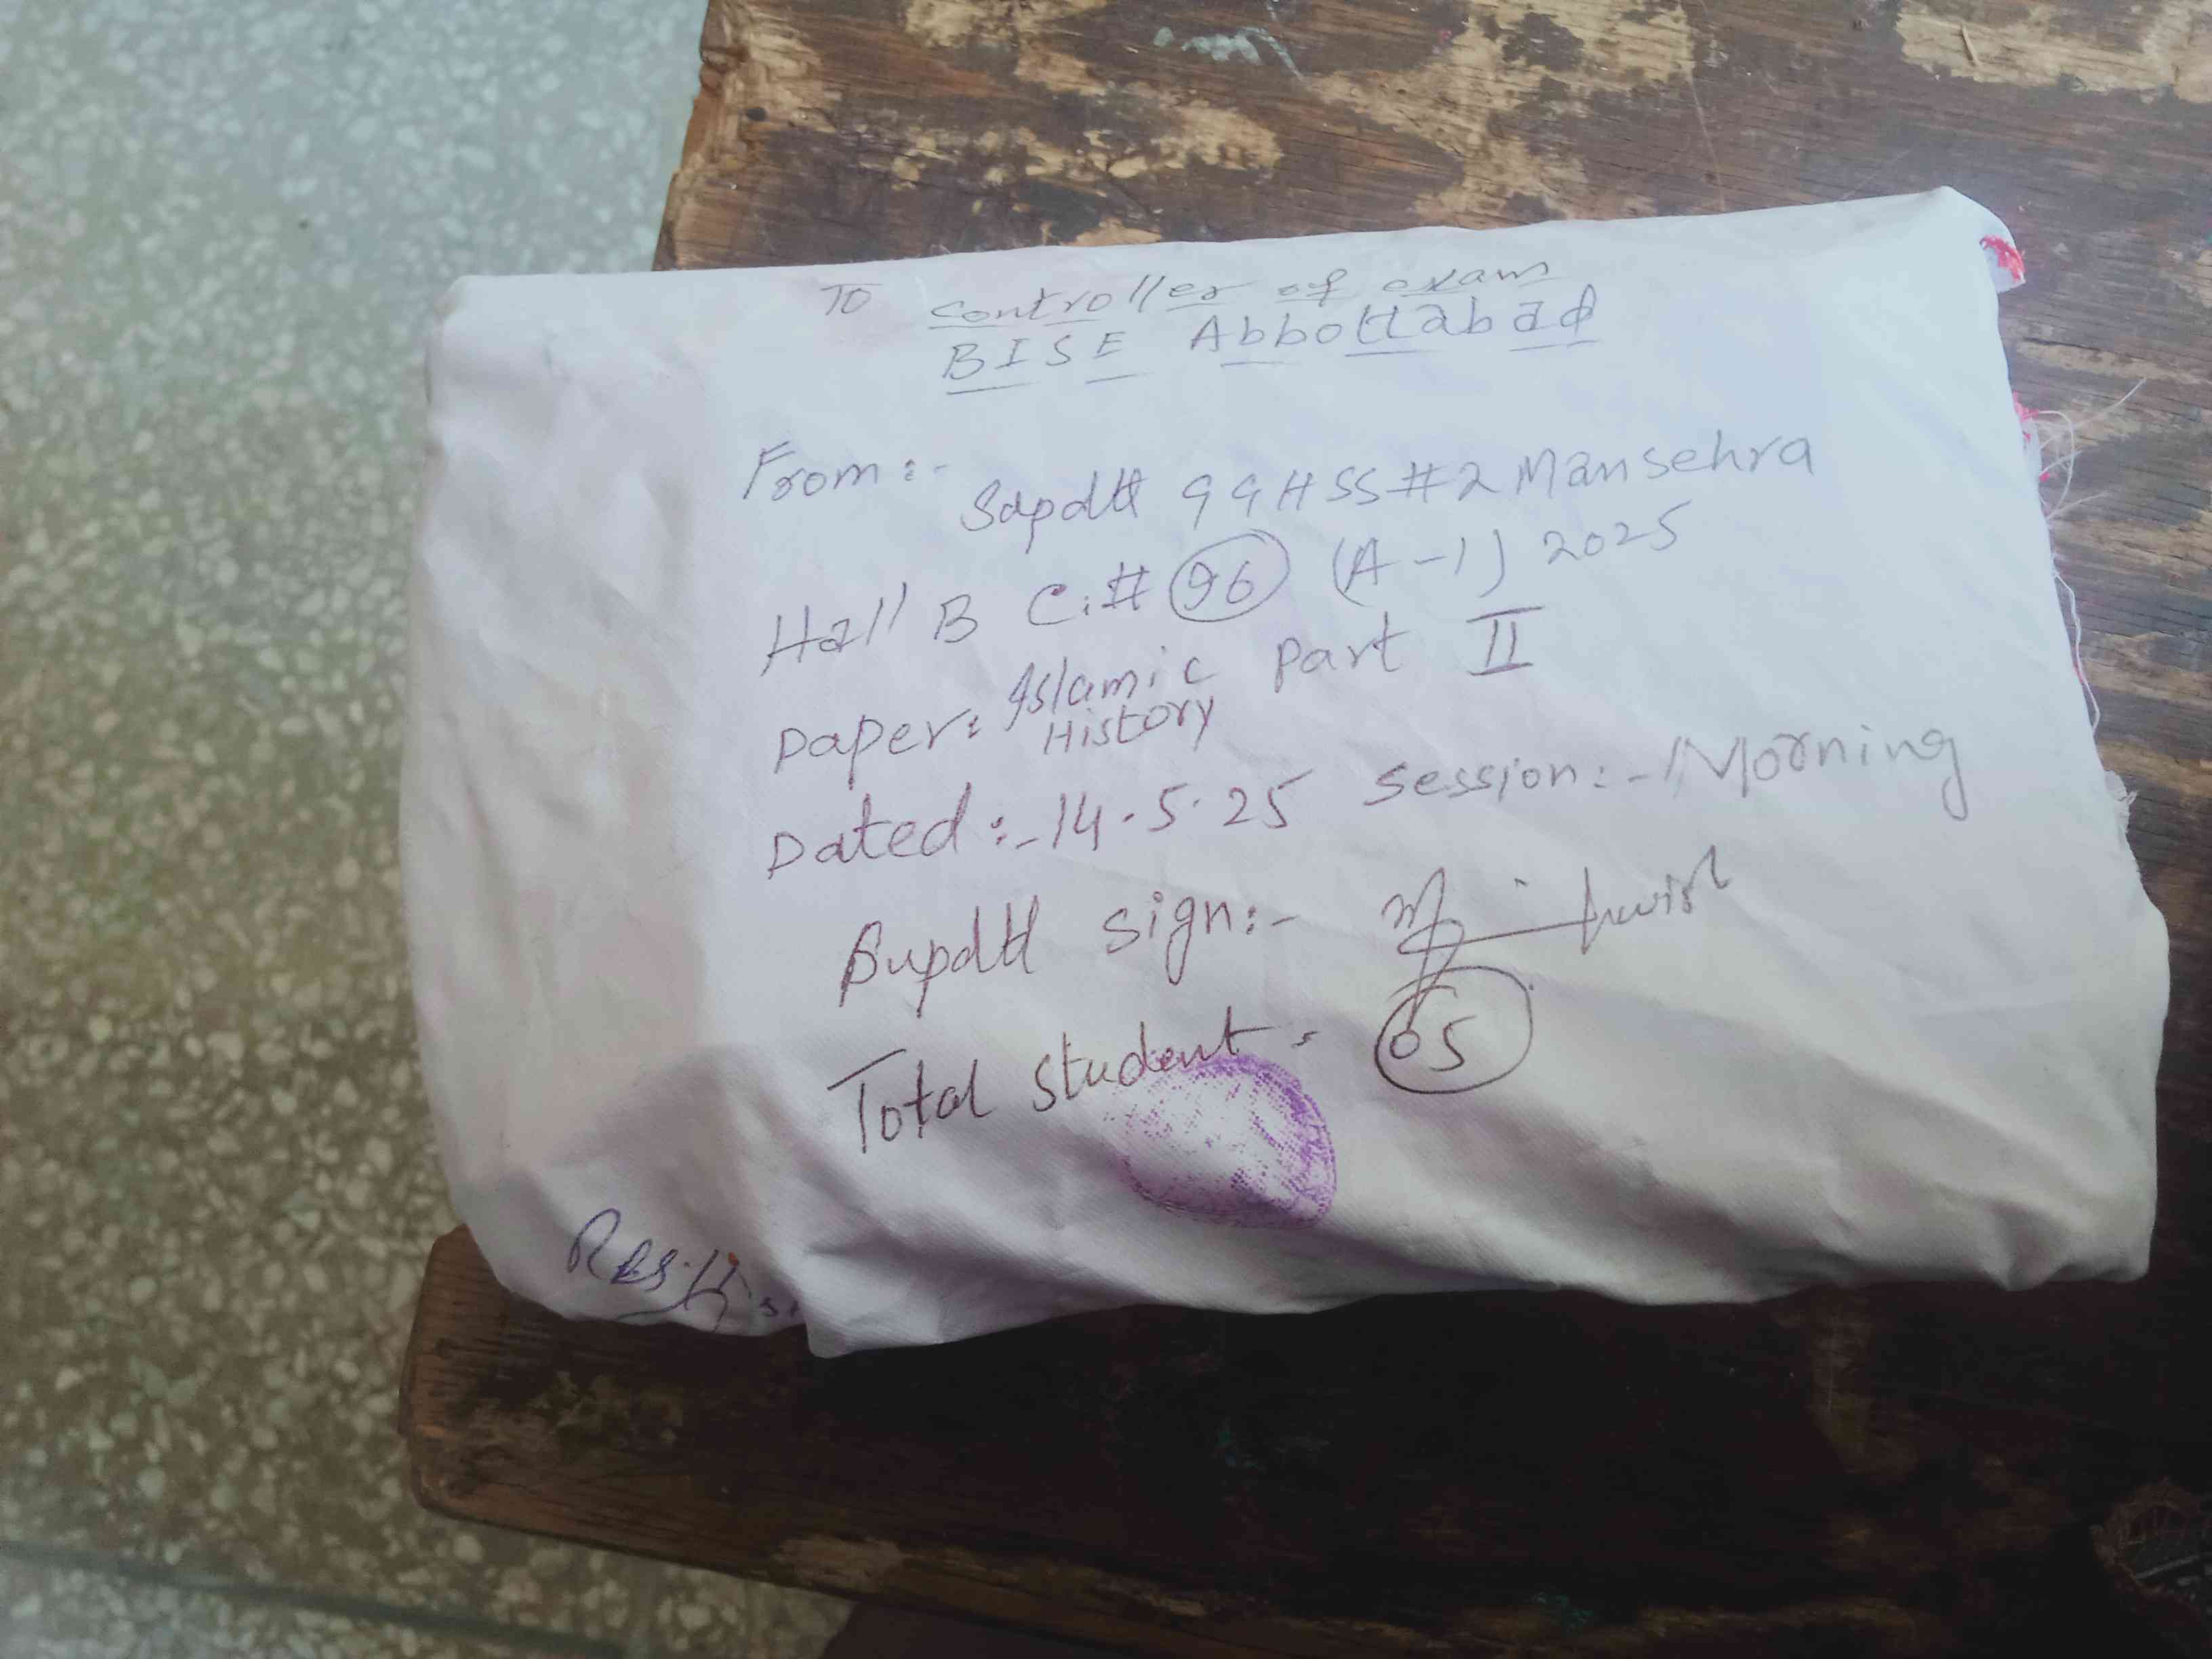 To Controller of exam
BISE Abbottabad
From:-
Supdtt GGHSS#2 Mansehra
Hall B C.# 96 (A-1) 2025
Paper: Islamic History Part II
Dated:- 14.5.25 Session:- Morning
Supdtt sign:-
Total student = 05